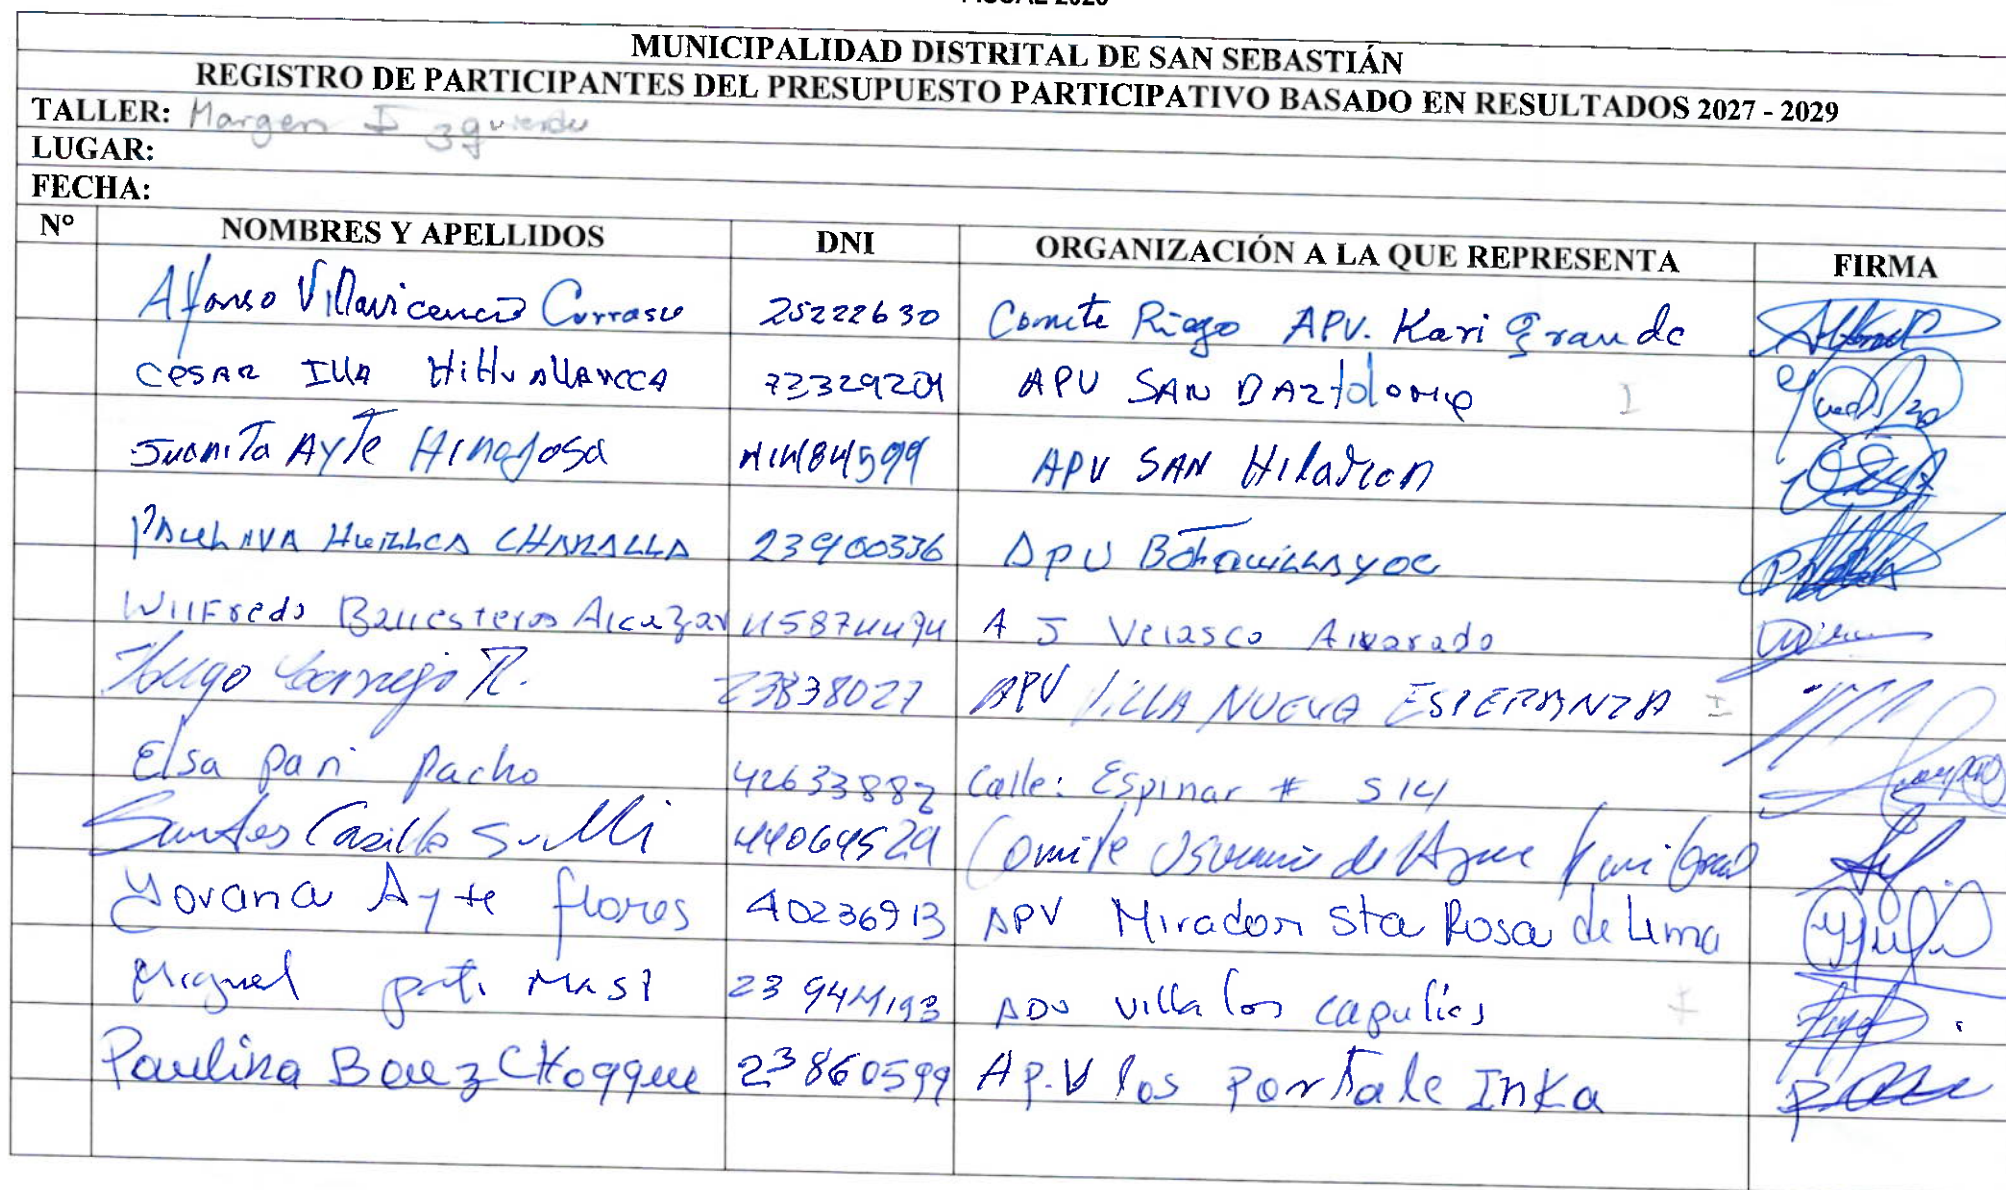 MUNICIPALIDAD DISTRITAL DE SAN SEBASTIÁN
REGISTRO DE PARTICIPANTES DEL PRESUPUESTO PARTICIPATIVO BASADO EN RESULTADOS 2027 - 2029
TALLER: Margen Izquierdo
LUGAR:
FECHA:
N° NOMBRES Y APELLIDOS DNI ORGANIZACIÓN A LA QUE REPRESENTA FIRMA
Alfonso Villavicencio Carrasco 25222630 Comite Riego APV. Kari Grande
CESAR Illa 72329201 APV SAN Bartolome I
Juanita Ayte Hinojosa APV SAN Hilarion
23900336 APV
Wilfredo Ballesteros Alcazar 45874494 A J Velasco Alvarado
Hugo Cornejo R. 23838027 APV VILLA NUEVA ESPERANZA I
Elsa pari pacho Calle: Espinar # 514
Santos Casilla Sulli 44064529 Comite Usuario de Agua Kari Grand
Yovana Ayte flores 40236913 APV Mirador Sta Rosa de Lima
Miguel 23944193 villa los capulies
Paulina Baez CHoqque 23860599 AP.V los Portale Inka